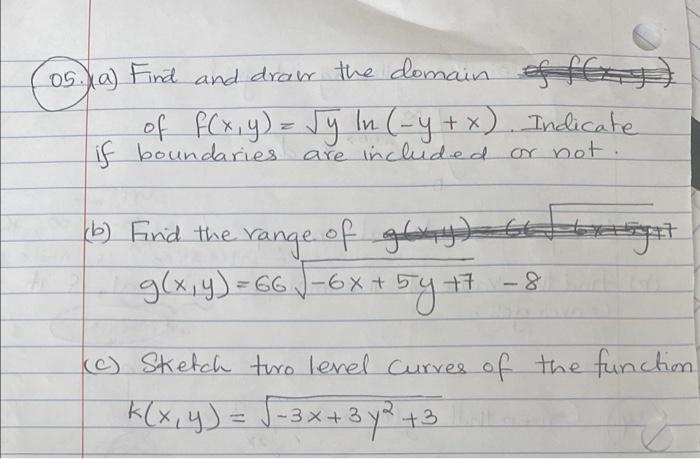 05. (a) Find and draw the domain of f(x,y)
of f(x,y) = √y ln (-y + x). Indicate
if boundaries are included or not.
(b) Find the range of g(x,y) = 66√6x+5y+7
g(x,y) = 66 √-6x + 5y +7 - 8
(c) Sketch two level curves of the function
K(x,y) = √-3x + 3y² + 3